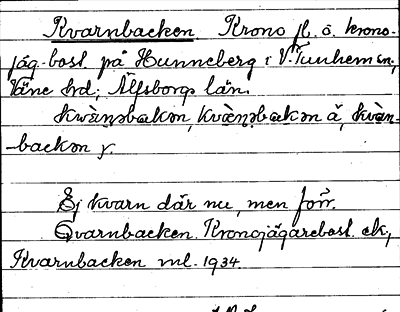 Kvarnbacken Krono fl. o. krono-
jäg. bost. på Hunneberg i V. Tunhems sn,
Väne hd, Älfsborgs län.
kwàṇbakən, kvæ̀ṇbakən ä, kvàn-
backən y.
Ej kvarn där nu, men förr.
Qvarnbacken. Kronojägarebost. ek,
Kvarnbacken ml. 1934.